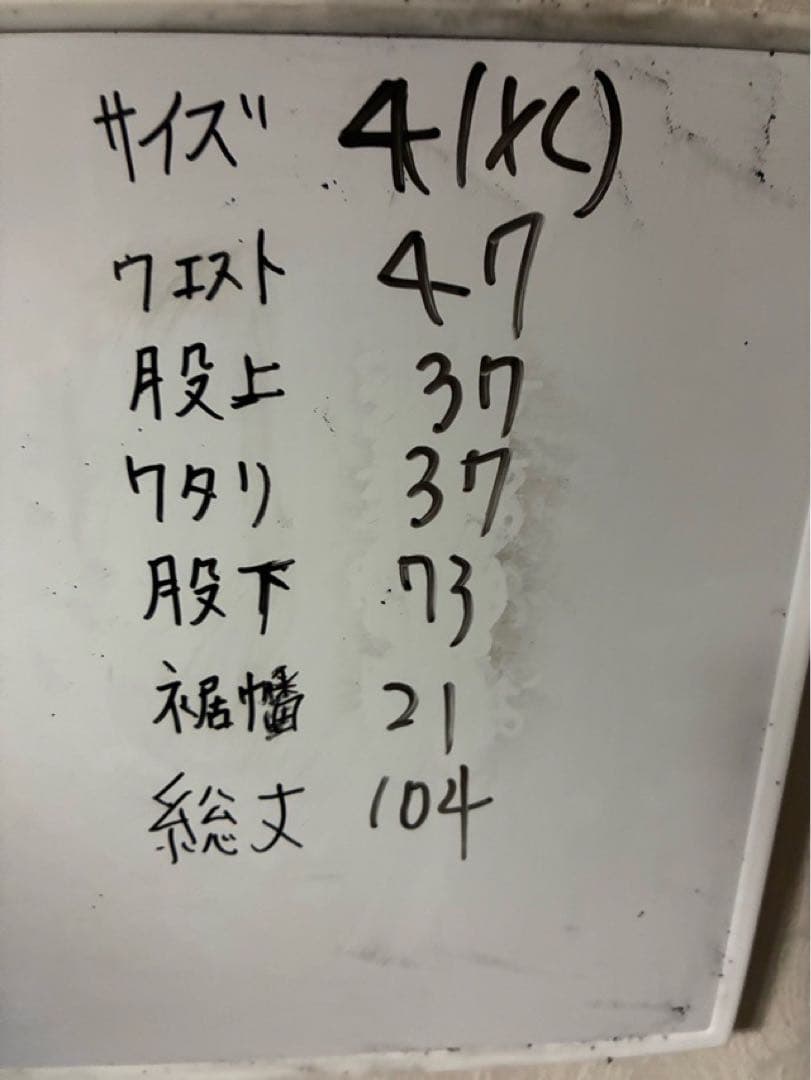 サイズ 4(XL)
ウエスト 47
股上 37
ワタリ 37
股下 73
裾幅 21
総丈 104